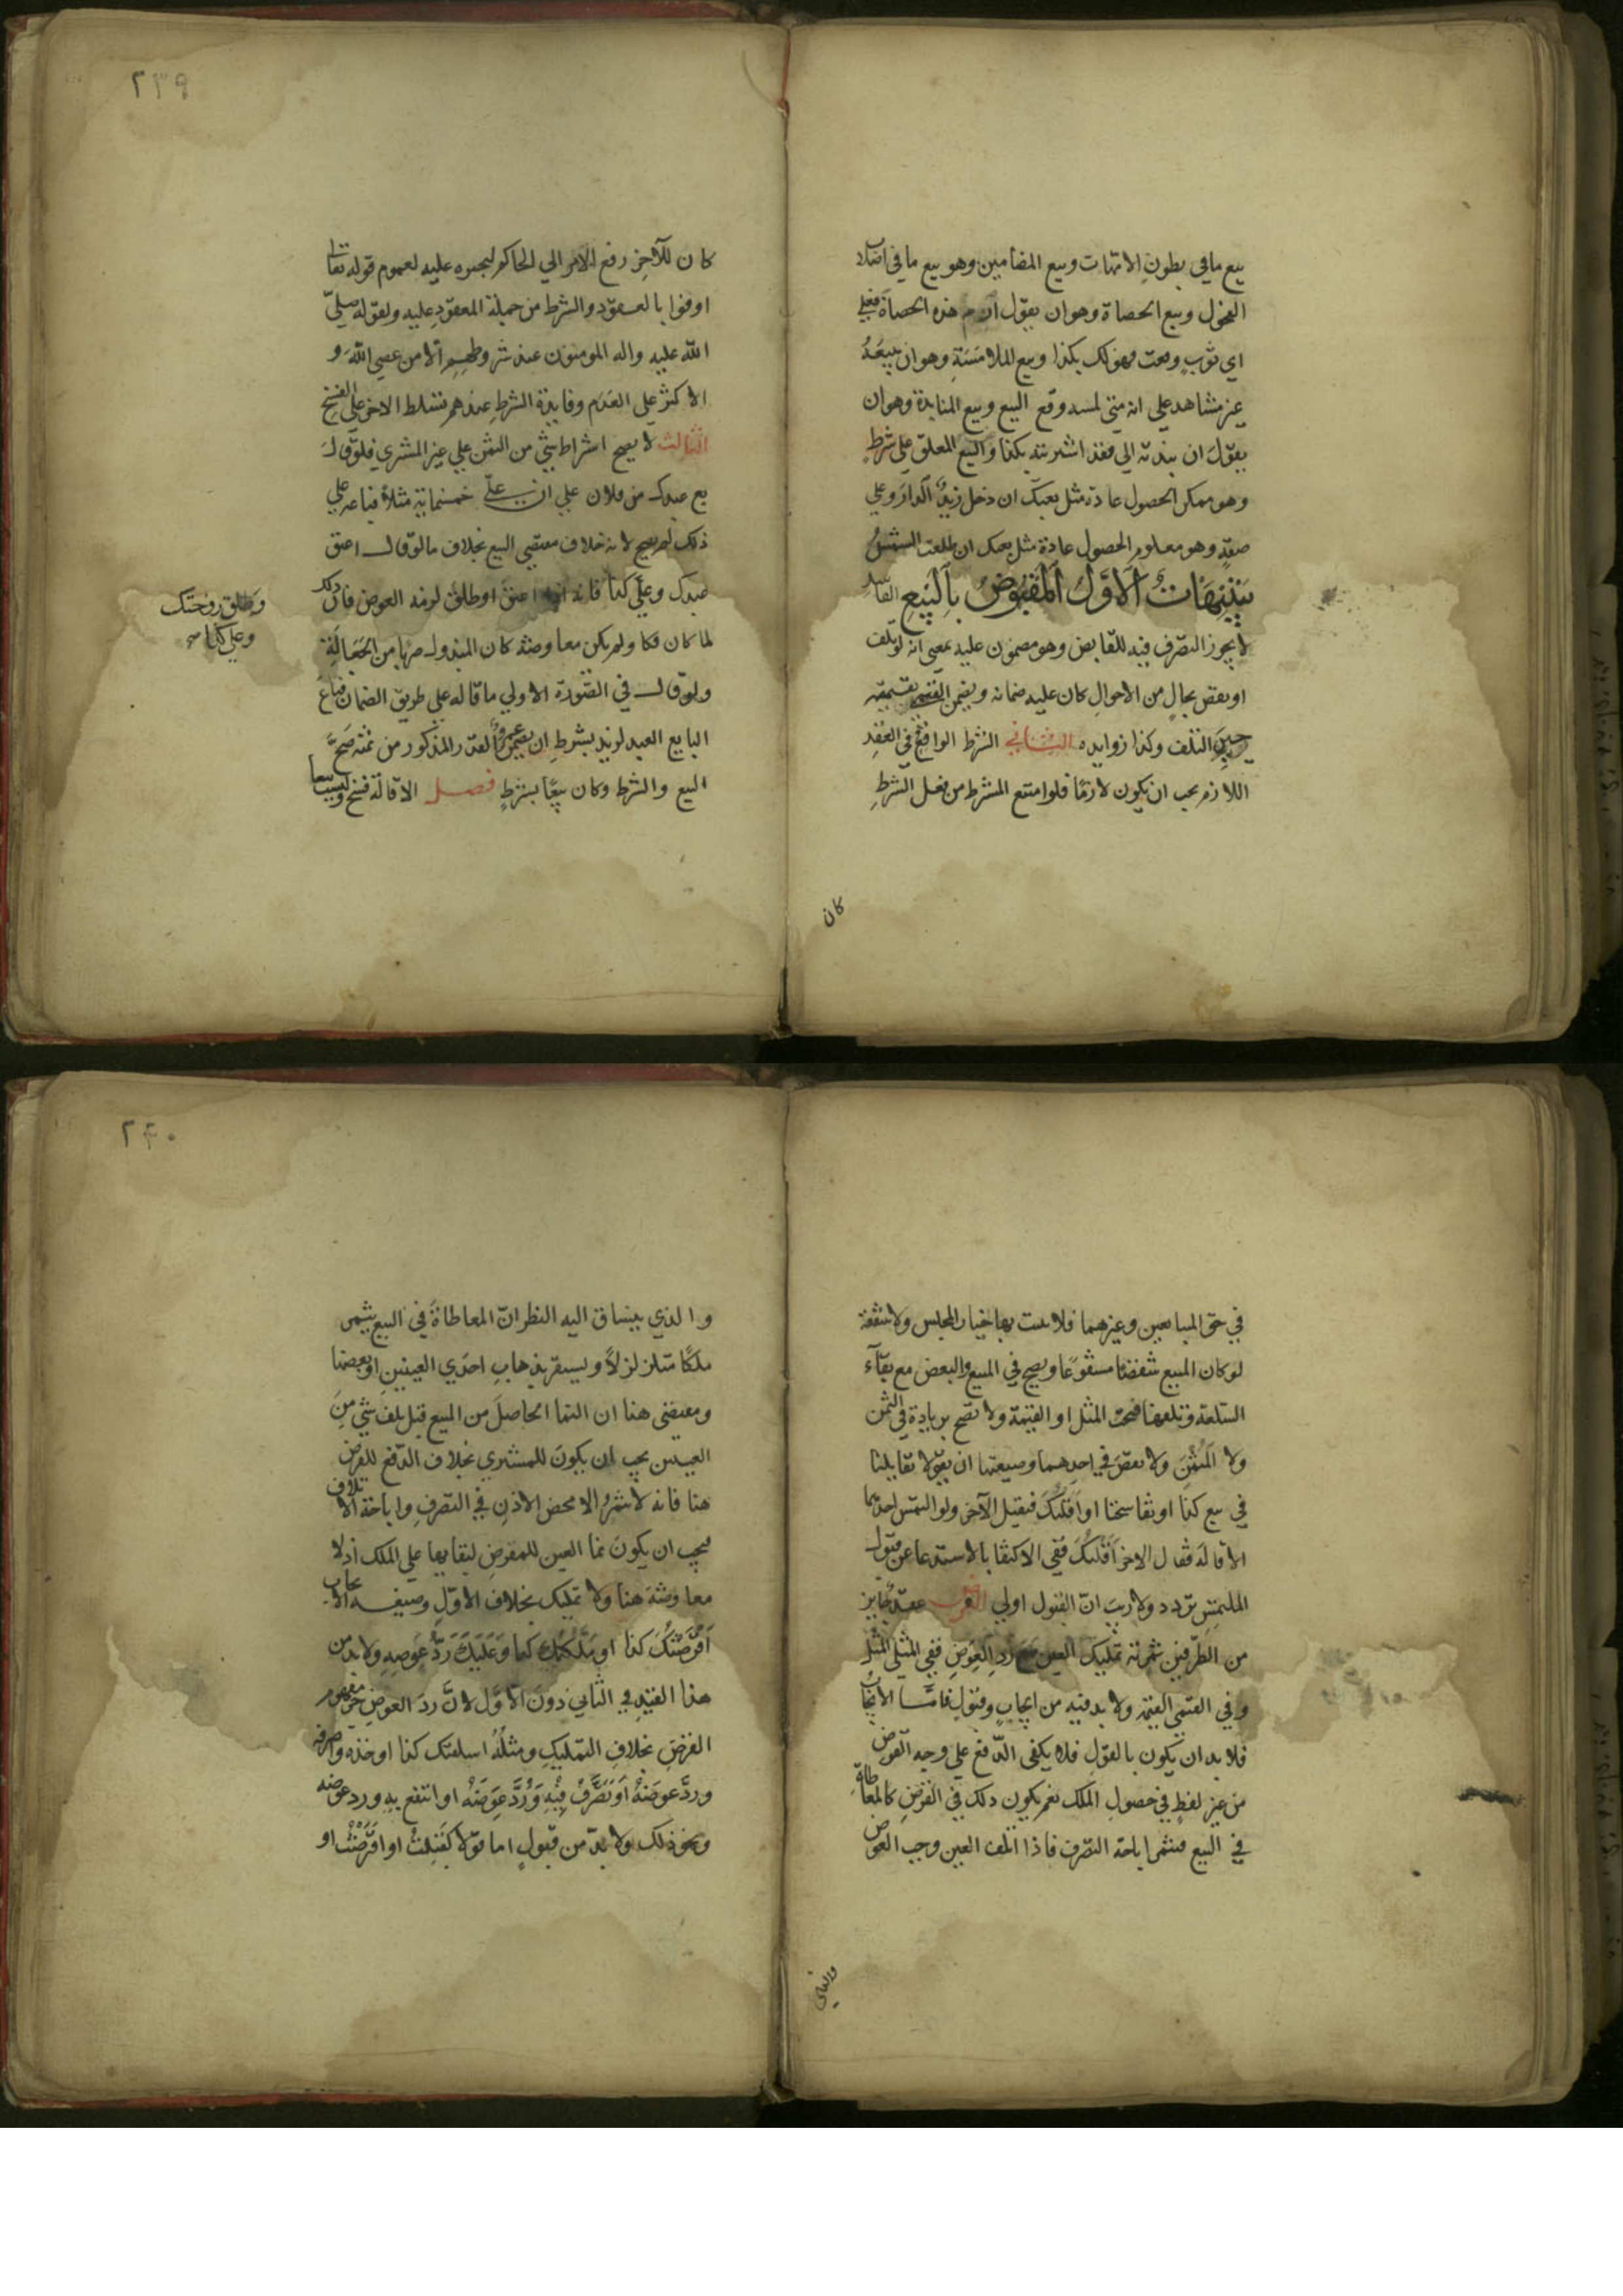 بيع ما في بطون الامهات وبيع المضامين وهو بيع ما في اصلاب
الفحول وبيع الحصاة وهو ان يقول ارم هذه الحصاة فعلي
اي ثوب وقعت فهو لك بكذا وبيع الملامسة وهو ان يبيعه
غير مشاهد علي انه متي لمسه وقع البيع وبيع المنابذة وهو ان
يقول ان نبذته الي فقد اشتريته بكذا والبيع المعلق علي شرط
وهو ممكن الحصول عادة مثل بعتك ان دخل زيد الدار وعلي
صفة وهو معلوم الحصول عادة مثل بعتك ان طلعت الشمس
تنبيهات الاول المقبوض بالبيع الفاسد
لا يجوز التصرف فيه للقابض وهو مضمون عليه بمعني انه لو تلف
او نقص بحال من الاحوال كان عليه ضمانه ويضمن القيمي بقيمته
حين التلف وكذا زوايده الثاني الشرط الواقع في العقد
اللازم يجب ان يكون لازما فلو امتنع المشترط من فعل الشرط
كان
٢٣٩
كان للآخر رفع الامر الي الحاكم ليجبره عليه لعموم قوله تعا
اوفوا بالعقود والشرط من جملة المعقود عليه ولقوله صلي
الله عليه واله المومنون عند شروطهم الا من عصي الله و
الاكثر علي العدم وفايدة الشرط عندهم تسلط الاخر علي الفسخ
الثالث لا يصح اشتراط شي من الثمن علي غير المشتري فلو قال
بع عبدك من فلان علي ان علي خمسماية مثلا فباعه علي
ذلك لم يصح لانه خلاف مقتضي البيع بخلاف ما لو قال اعتق
عبدك وعلي كذا فانه اذا اعتق او طلق لزمه العوض فان ذلك
وطلق زوجتك
وعلي كذا صح
لما كان فكا ولم يكن معاوضة كان المبذول ضربا من الجعالة
ولو قال في الصورة الاولي ما قاله علي طريق الضمان فباع
البايع العبد لزيد بشرط ان يضمن عمرو القدر المذكور من ثمنه صح
البيع والشرط وكان بيعا بشرط فصل الاقالة فسخ وليست بيعا
في حق المتبايعين وغيرهما فلا يثبت بها خيار المجلس ولا شفعة
لو كان المبيع شقصا مشفوعا ويصح في المبيع والبعض مع بقآء
السلعة وتلفها فيجب المثل او القيمة ولا تصح بزيادة في الثمن
ولا المثمن ولا نقص في احدهما وصيغتها ان يقولا تقايلنا
في بيع كذا او تفاسخنا او اقلتك فيقبل الآخر ولو التمس احدهما
الاقالة فقال الاخر اقلتك ففي الاكتفا بالاستدعا عن قبول
الملتمس تردد ولا ريب ان القبول اولي القرض عقد جايز
من الطرفين ثمرته تمليك العين مع رد العوض ففي المثلي المثل
وفي القيمي القيمة ولا بد فيه من ايجاب وقبول فاما الايجاب
فلا بد ان يكون بالقول فلا يكفي الدفع علي وجه القرض
من غير لفظ في حصول الملك نعم يكون ذلك في القرض كالمعاطاة
في البيع فيثمر اباحة التصرف فاذا اتلف العين وجب العوض
والذي
٢٤٠
والذي ينساق اليه النظر ان المعاطاة في البيع يثمر
ملكا متزلزلا ويستقر بذهاب احدي العينين او بعضها
ومقتضي هنا ان النما الحاصل من المبيع قبل تلف شي من
العينين يجب ان يكون للمشتري بخلاف الدفع للقرض
هنا فانه لا يثمر الا محض الاذن في التصرف واباحة الاتلاف
فيجب ان يكون نما العين للمقرض لبقايها علي الملك اذ لا
معاوضة هنا ولا تمليك بخلاف الاول وصيغة الايجاب
اقرضتك كذا او ملكتك كذا وعليك رد عوضه ولا بد من
هذا القيد في الثاني دون الاول لان رد العوض جزو مفهوم
القرض بخلاف التمليك ومثله اسلفتك كذا او خذه واصرفه
ورد عوضه او تصرف فيه ورد عوضه او انتفع به ورد عوضه
ونحو ذلك ولا بد من قبول اما قولا كقبلت او اقترضت او